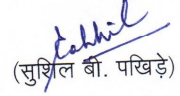 (सुशिल बी. पखिडे)